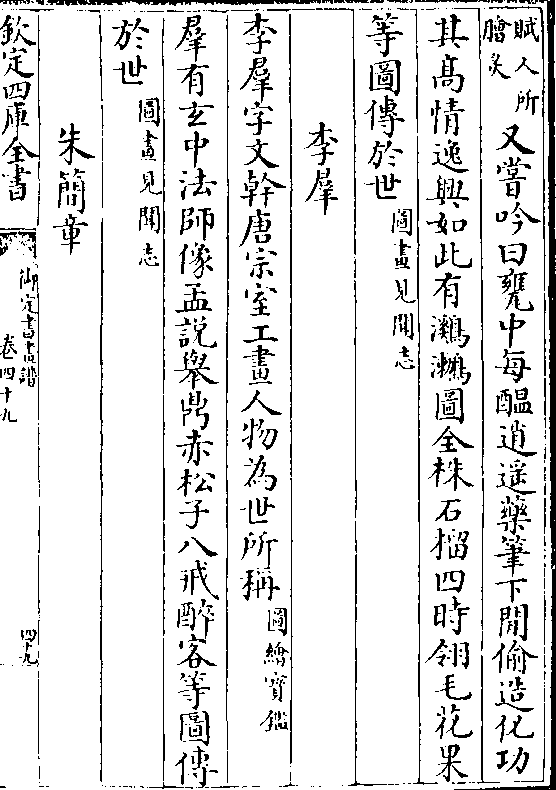 賦人所
膾炙
又嘗吟曰甕中每醖逍遥藥筆下閒偷造化功
其髙情逸興如此有㶉鶒圖全株石榴四時翎毛花果
等圖傳於世
圖畫見聞志
李羣
李羣字文幹唐宗室工畫人物為世所稱
圖繪寳鑑
羣有𤣥中法師像孟説舉鼎赤松子八戒醉客等圖傳
於世
圖畫見聞志
朱簡章
欽定四庫全書
御定書畫譜
卷四十九
四十九